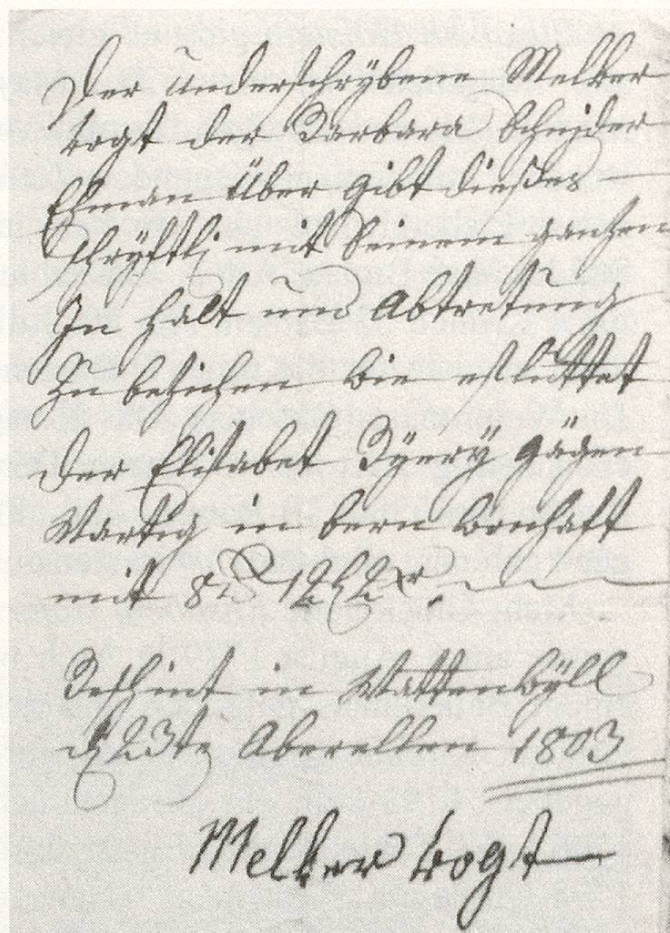 Der underschrybene Melker
vogt der Barbara Schnider
Ehman über gibt dieses
schryftli mit Seinem ganzen
In halt und Abtretung
Zu bezichen wie es luttet
der Elisabet Byery gägen
Wartig in bern wonhaft
mit 8 12 2
Beschint in Wattenwyll
d 23te Aberellen 1803
Melker vogt